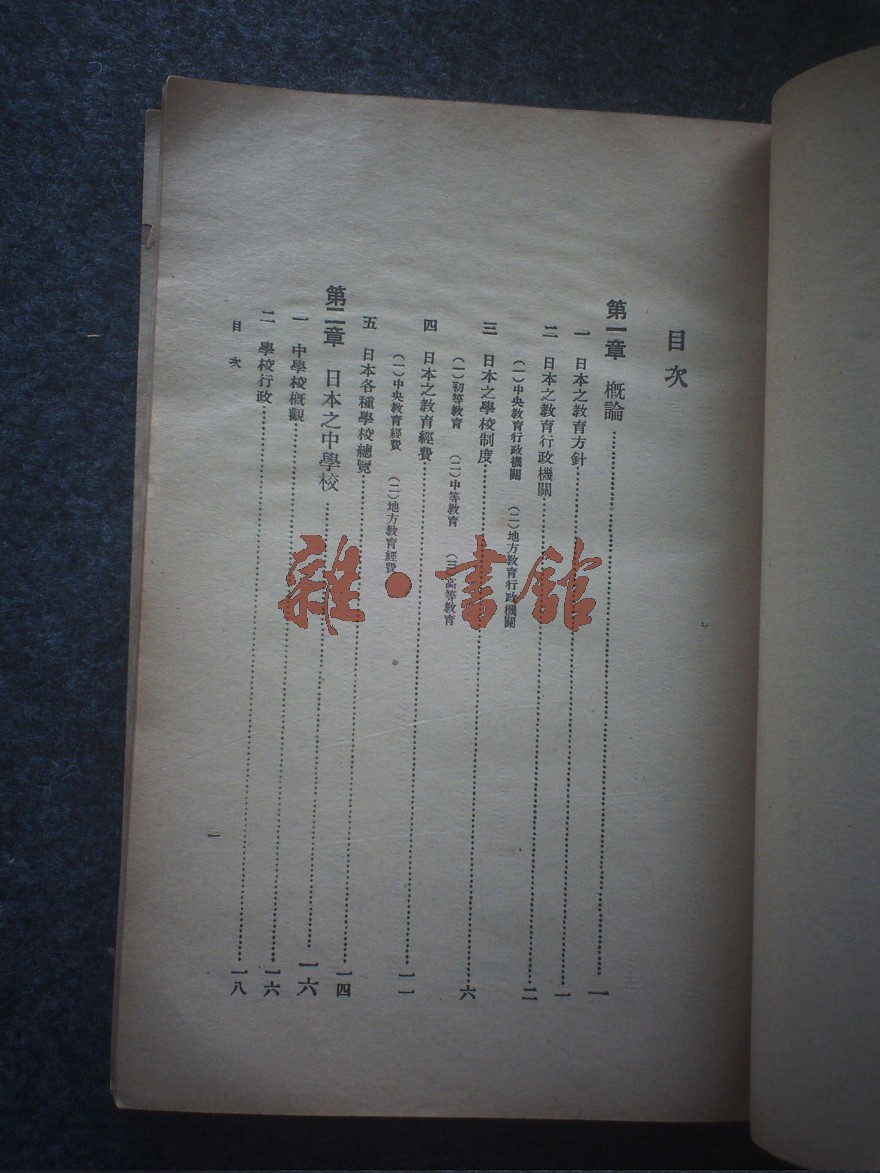 目次
第一章 概論…………一
一 日本之教育方針…………一
二 日本之教育行政機關…………二
(一)中央教育行政機關 (二)地方教育行政機關
三 日本之學校制度…………六
(一)初等教育 (二)中等教育 (三)高等教育
四 日本之教育經費…………一一
(一)中央教育經費 (二)地方教育經費
五 日本各種學校總覽…………一四
第二章 日本之中學校…………一六
一 中學校概觀…………一六
二 學校行政…………一八
目次 一
雜·書館